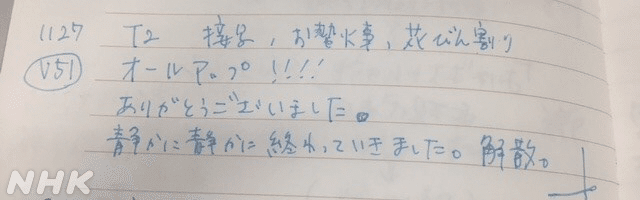 1127 T2 接写, お勢火事, 花びん割り
V51 オールアップ!!!!
ありがとうございました。
静かに静かに終わっていきました。解散。
NHK